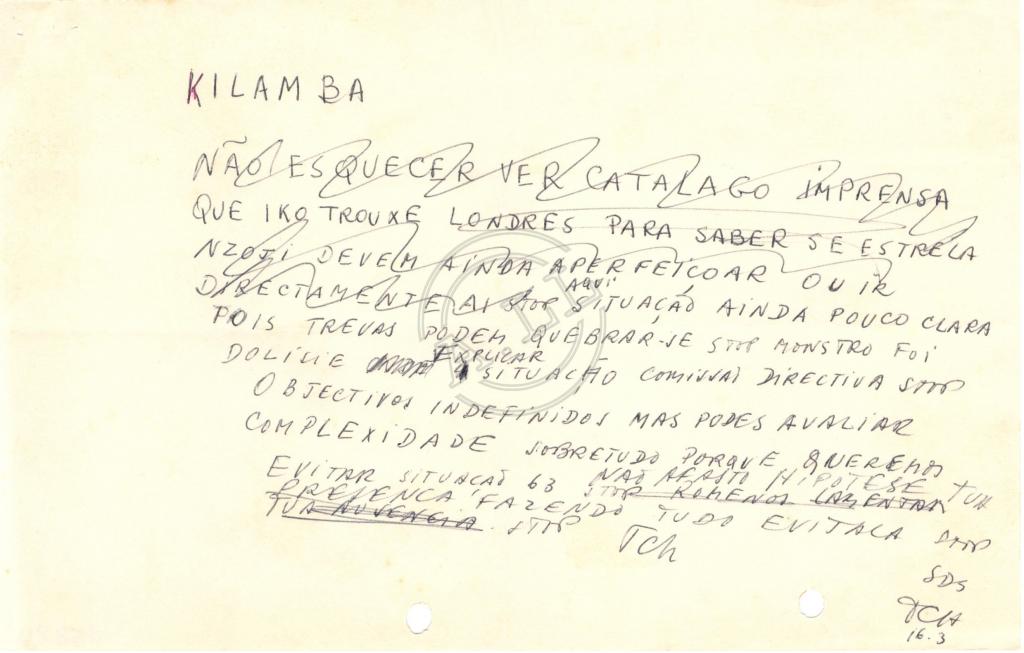 KILAMBA
NÃO ESQUECER VER CATALAGO IMPRENSA
QUE IKO TROUXE LONDRES PARA SABER SE ESTRELA
NZOJI DEVEM AINDA APERFEIÇOAR OU IR
DIRECTAMENTE AI STOP SITUAÇÃO AQUI AINDA POUCO CLARA
POIS TREVAS PODEM QUEBRAR-SE STOP MONSTRO FOI
DOLISIE EXPLICAR SITUAÇÃO COMISSÃO DIRECTIVA STOP
OBJECTIVOS INDEFINIDOS MAS PODES AVALIAR
COMPLEXIDADE SOBRETUDO PORQUE QUEREMOS
EVITAR SITUAÇÃO 63 NÃO AFASTO HIPÓTESE TUA
PRESENÇA FAZENDO TUDO EVITALA STOP
STOP ROMENOS LAMENTAM
TUA AUSENCIA STOP
Tch
SDS
TCH
16.3